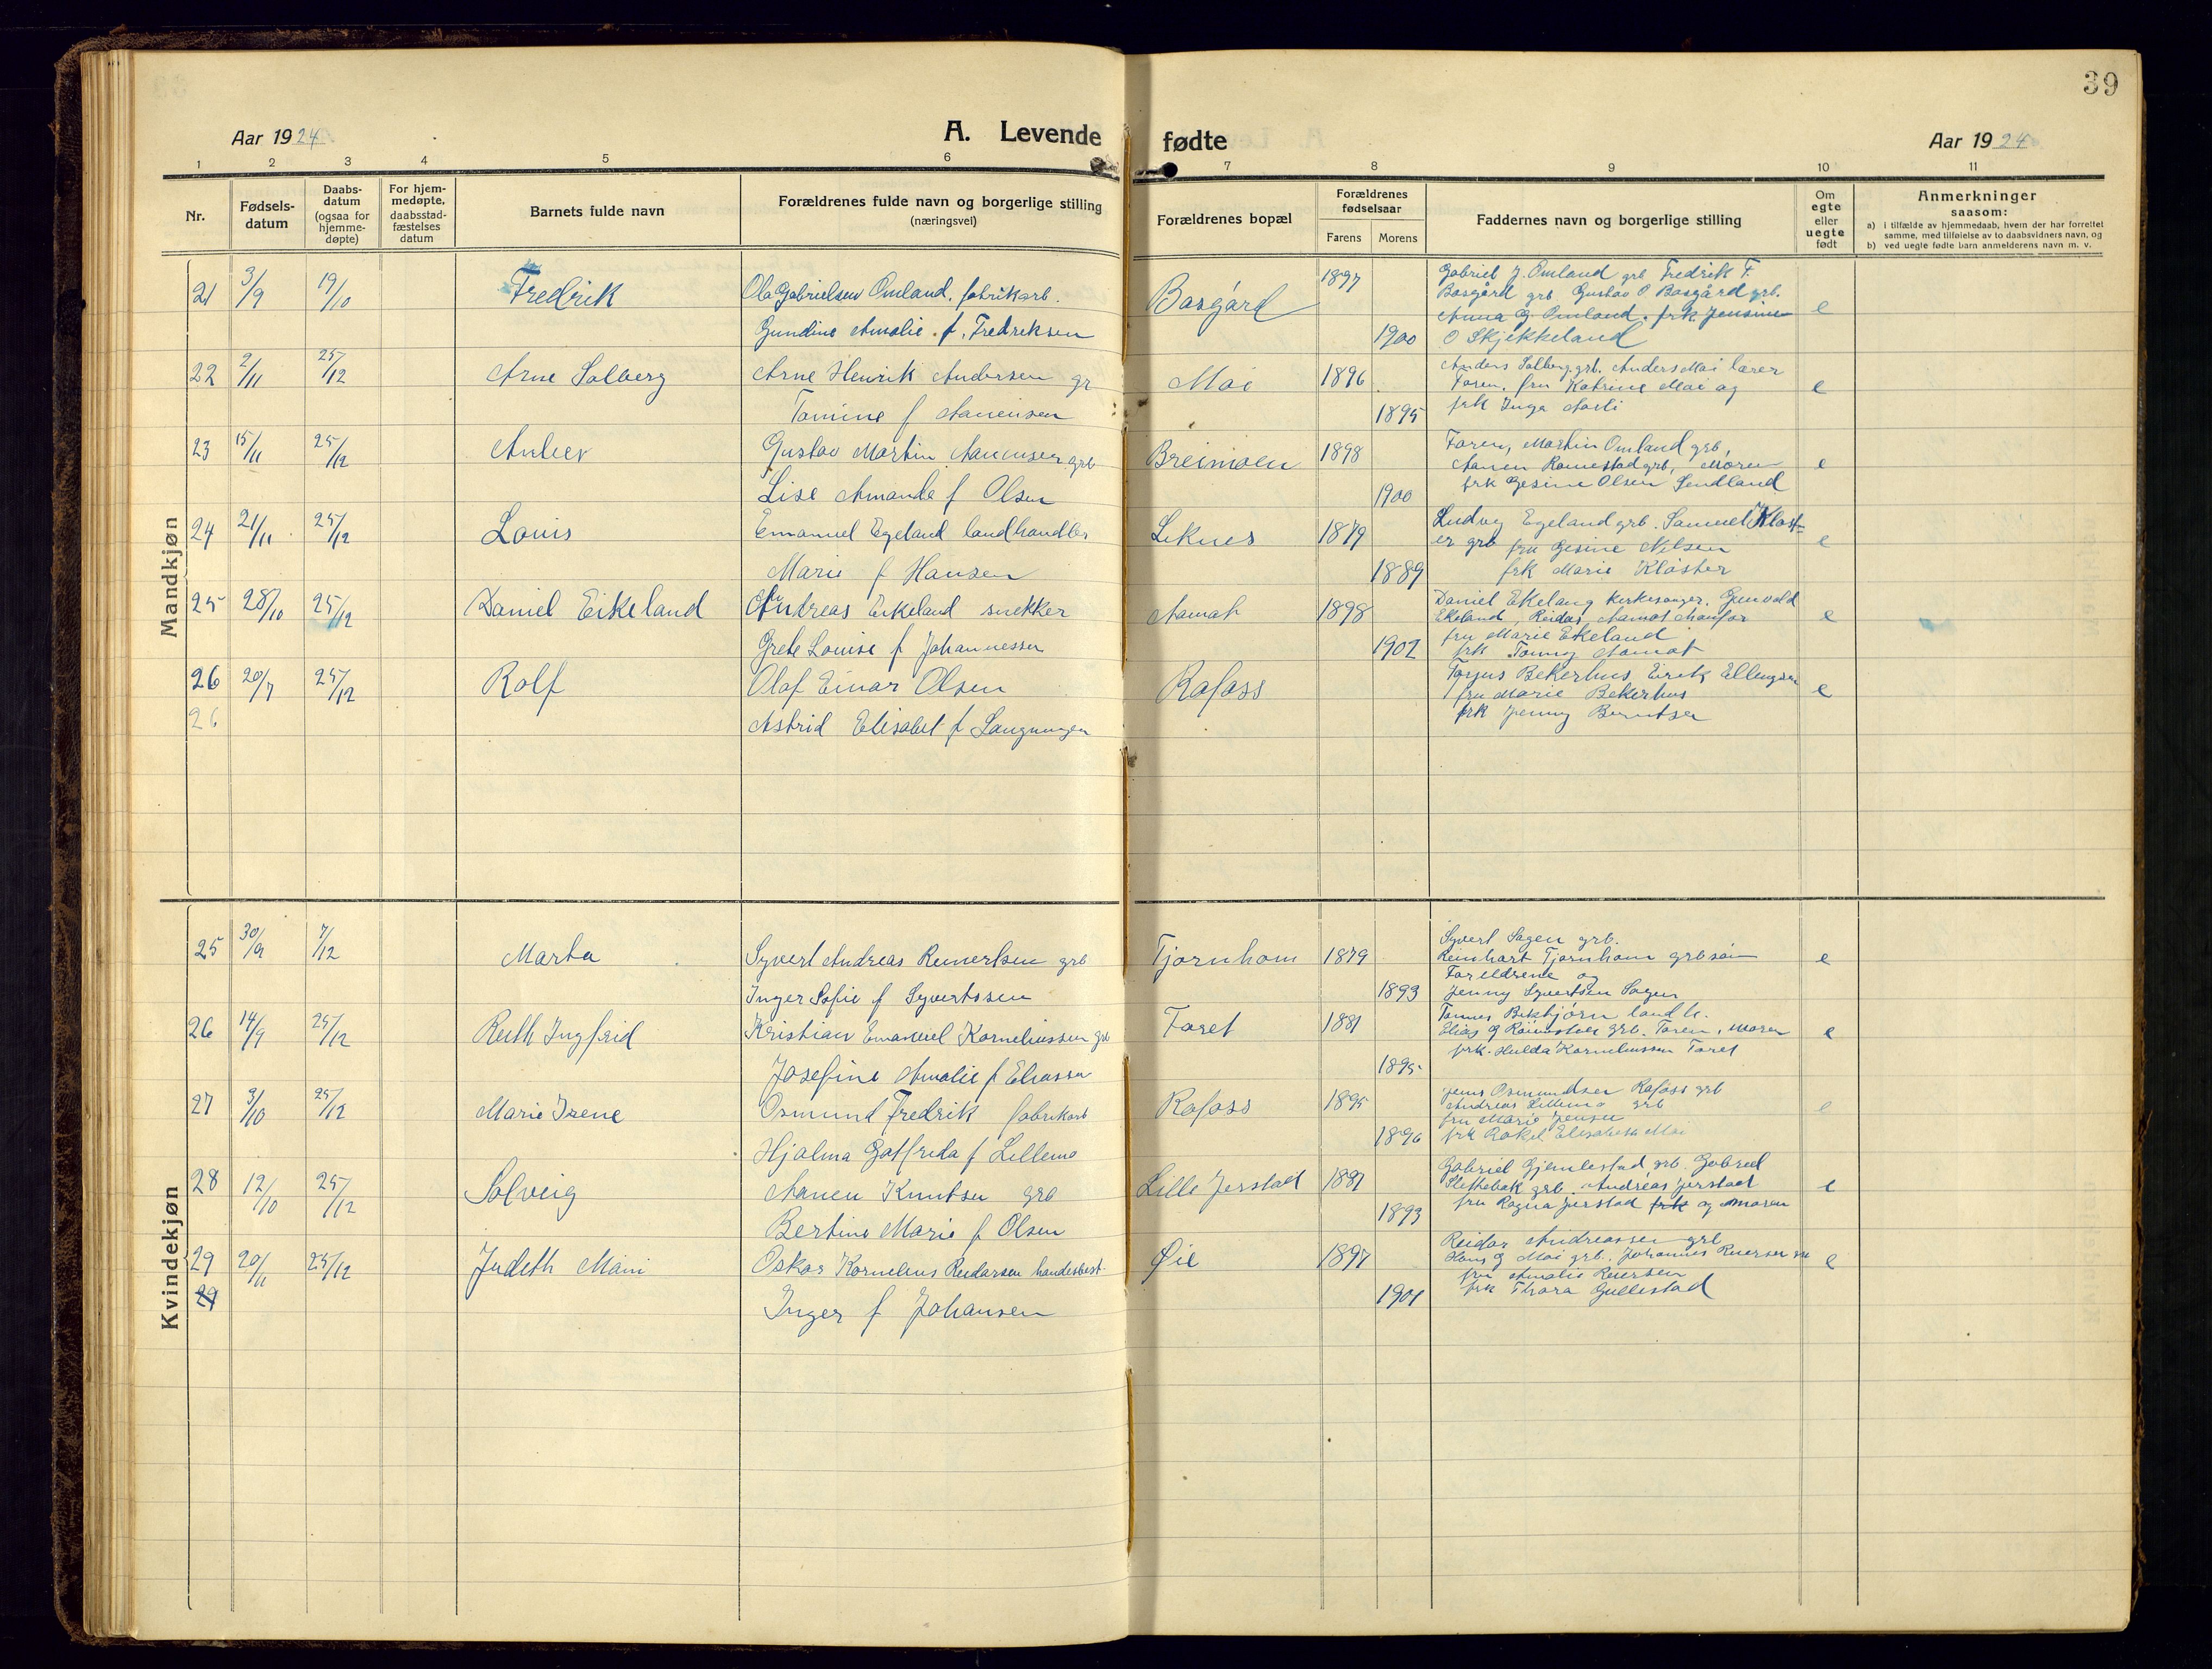 39
Aar 1924
A. Levende fødte
Aar 1924
1 2 3 4 5 6 7 8 9 10 11
Nr.
Fødsels-
datum
Daabs-
datum
(ogsaa for
hjemme-
døpte)
For hjem-
medøpte,
daabsstad-
fæstelses
datum
Barnets fulde navn
Forældrenes fulde navn og borgerlige stilling
(næringsvei)
Forældrenes bopæl
Forældrenes
fødselsaar
Farens Morens
Faddernes navn og borgerlige stilling
Om
egte
eller
uegte
født
Anmerkninger
saasom:
a) i tilfælde av hjemmedaab, hvem der har forrettet
samme, med tilføielse av to daabsvidners navn, og
b) ved uegte fødte barn anmelderens navn m. v.
Mandkjøn
21 3/9 19/10 Fredrik Ola Gabrielsen Omland, fabrikarb. Basgård 1897 e
Gundine Amalie f. Fredreksen 1900
Gabriel J. Omland grb Fredrik F.
Basgård grb Gustav O Basgård grb.
Anna G. Omland. frk Jensine
O Skjekkeland
22 2/11 25/12 Arne Solberg Arne Henrik Andersen gr Moi 1896 e
Tomine f Aanensen 1895
Anders Solberg grb. Anders Moi lærer
Faren, fru Katrine Moi og
frk Inga
23 15/11 25/12 Gustav Martin Aanensen grb Breimoen 1898 e
Lise Amande f Olsen 1900
Faren, Martin Omland grb,
Aanen grb, Moren
frk Gesine Olsen Sendland
24 21/11 25/12 Louis Emanuel Egeland landhandler Leknes 1879 e
Marie f Hansen 1889
Ludvig Egeland grb. Samuel Klost-
er grb fru Gesine Nilsen
frk Marie Kloster
25 28/10 25/12 Daniel Eikeland Andreas Eikeland snekker Aamot 1898 e
Grete Louise f Johannessen 1902
Daniel Ekeland kirkesanger. Gunvald
Ekeland, Reidar Aamot
fru Marie Ekeland
frk Tonny Aamot
26 20/7 25/12 Rolf Olaf Einar Olsen Rafoss e
26 Astrid Elisabet f
Bekerhus, Eirik Ellingsen
fru Marie Bekerhus
frk Jenny Berntsen
Kvindekjøn
25 30/9 7/12 Marta Syvert Andreas Reinertsen grb Tjørnhom 1879 e
Inger Sofie f Syvertsen 1893
Syvert Sagen grb.
Reinhart Tjørnhom grbsøn
Foreldrene og
Jenny Syvertsen Sagen
26 14/9 25/12 Ruth Ingfrid Kristian Emanuel Korneliussen grb Faret 1881 e
Josefine Amalie f Eliassen 1895
Tønnes landh.
Elias G grb. Faren, moren
frk. Hulda Korneliussen Faret
27 3/10 25/12 Marie Irene Osmund Fredrik fabrikarb Rafoss 1895 e
Hjalma Gotfreda f Lillemo 1896
Jens Osmundsen Rafoss grb
Andreas Lillemo grb
fru Marie Jensen
frk Rakel Elisabeth Moi
28 12/10 25/12 Solveig Aanen Knutsen grb Lille Jerstad 1881 e
Bertine Marie f Olsen 1893
Gabriel Gjemlestad grb. Gabriel
Slettebak grb. Andreas Jerstad
fru Ragna Jerstad frk og moren
29 20/11 25/12 Judith Oskar Kornelius Reidarsen Øie 1897 e
29 Inger f Johansen 1901
Reidar Andreassen grb
Hans G Moi grb. Johannes
fru Amalie
frk Thora Gullestad